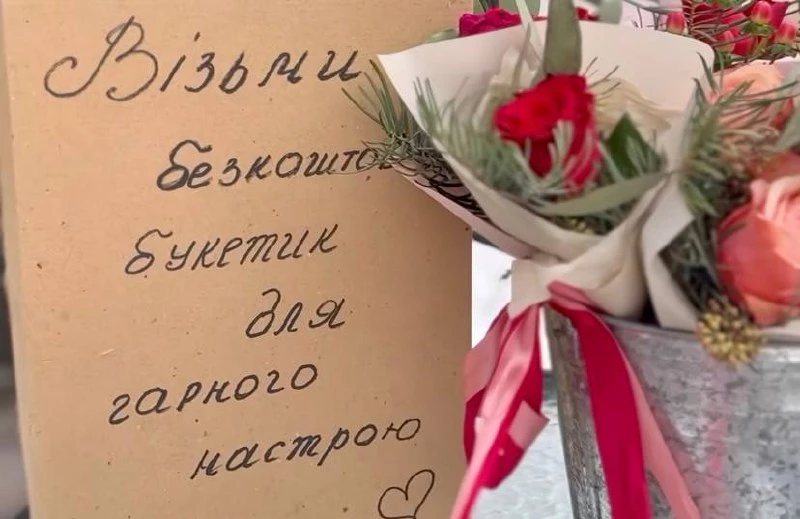 Візьми
безкошто
букетик
для
гарного
настрою